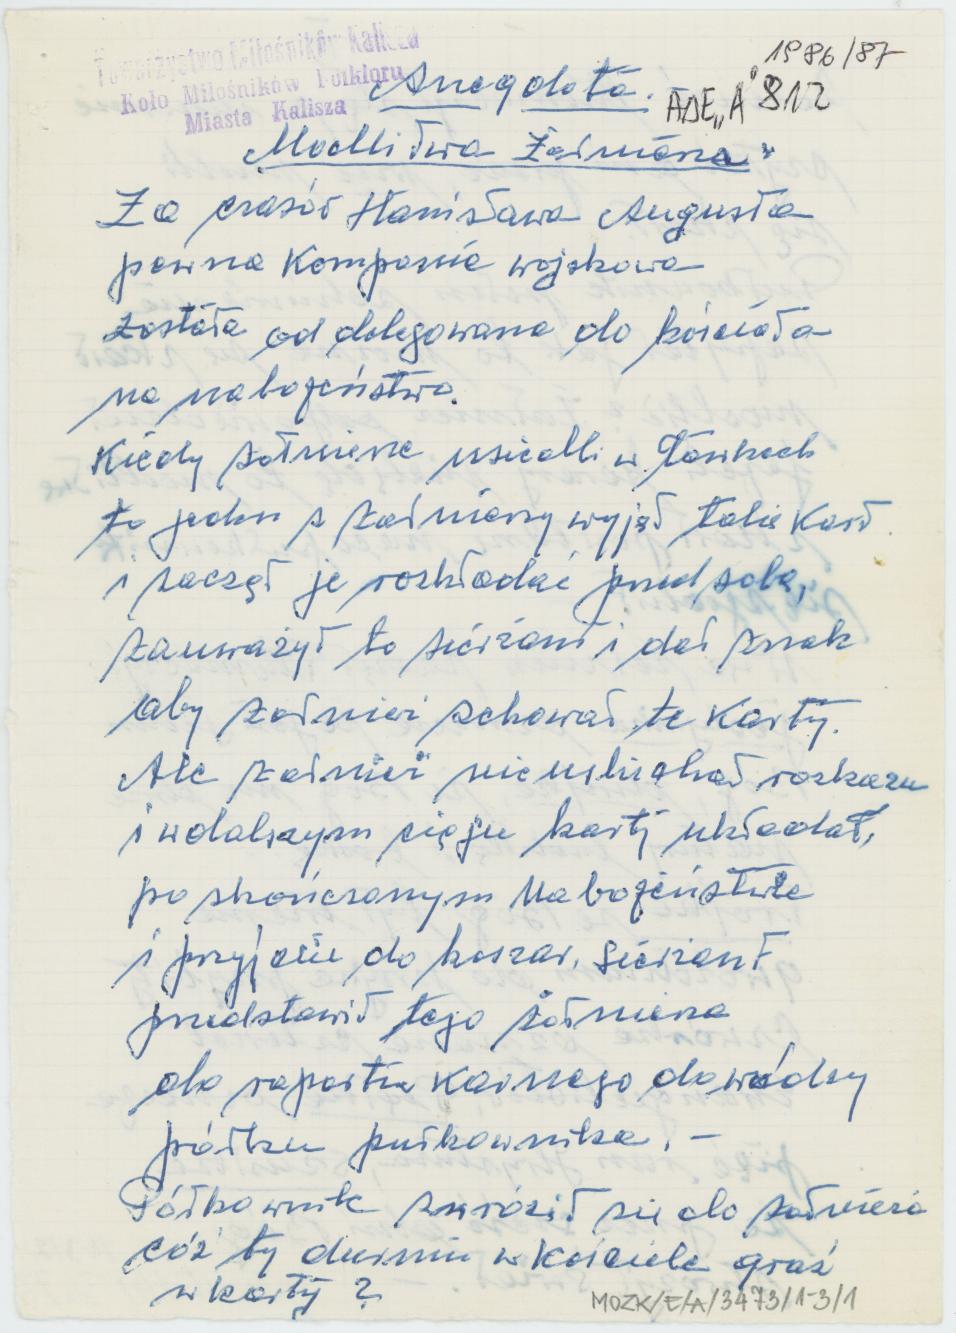 Towarzystwo Miłośników Kalisza
Koło Miłośników Folkloru
Miasta Kalisza
1986/87
Anegdota.
ADE „A" 812
„Modlitwa Żołnierza"
Za czasów Stanisława Augusta
pewna Kompania wojskowa
została od delegowana do kościoła
na nabożeństwo.
Kiedy żołnierze usiedli w Ławkach
to jeden z żołnierzy wyjął talie Kart
i zaczął je rozkładać przed sobą,
zauważył to sierżant i dał znak
aby żołnierz schował te Karty.
Ale żołnierz nie usłuchał rozkazu
i wdalszym ciągu karty układał,
po skończonym Nabożeństwie
i przyjściu do koszar, Sierżant
przedstawił tego żołnierza
do raportu Karnego dowódzy
półku pułkownika. –
Półkownik zwrócił sie do żołnierza
cóż ty durniu w Kościele grasz
w karty ?
MOZK/E/A/3473/1-3/1